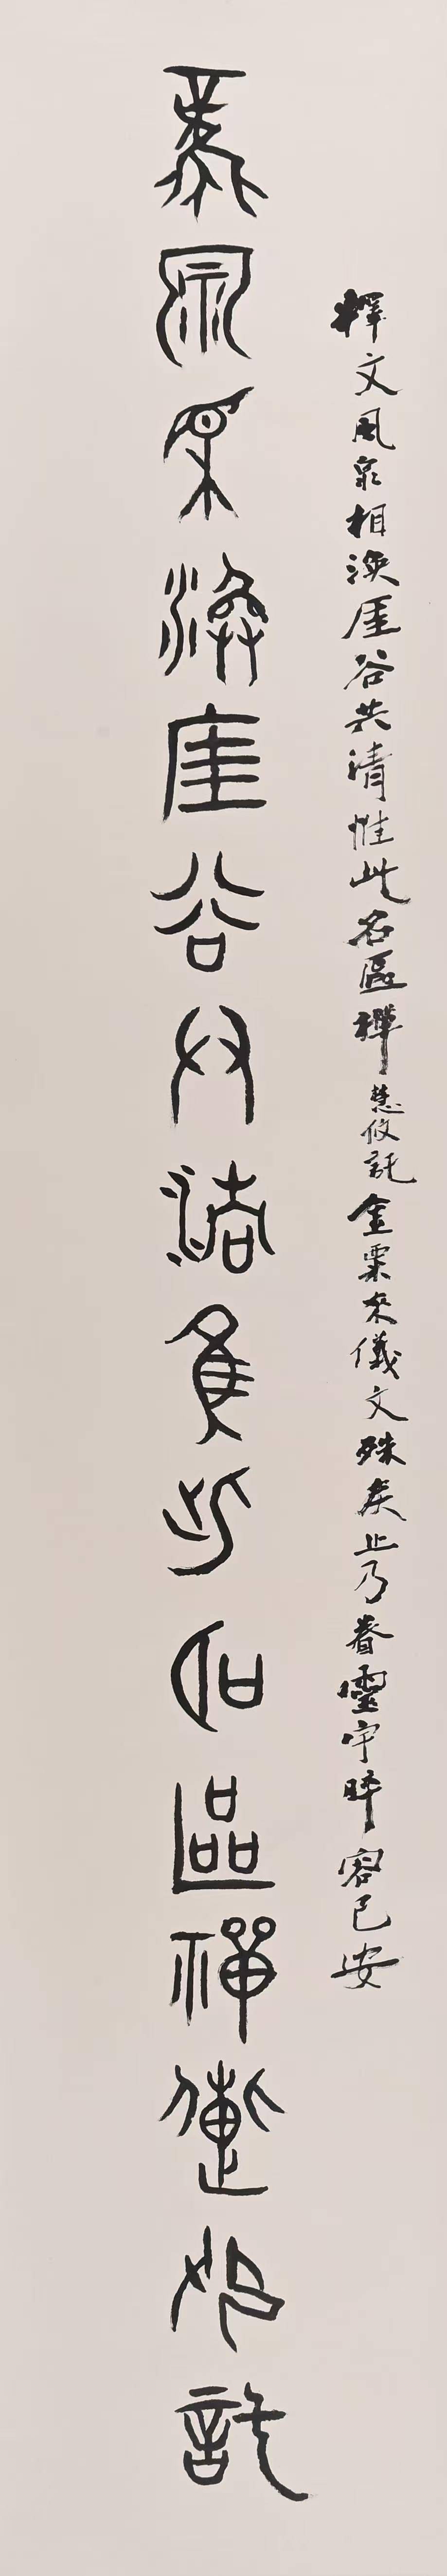 釋文風泉相渙崖谷共清惟此名區禪慧攸託金粟來儀文殊戾止乃眷靈宇睟容已安
風泉相渙崖谷共清隹此名區禪慧攸託